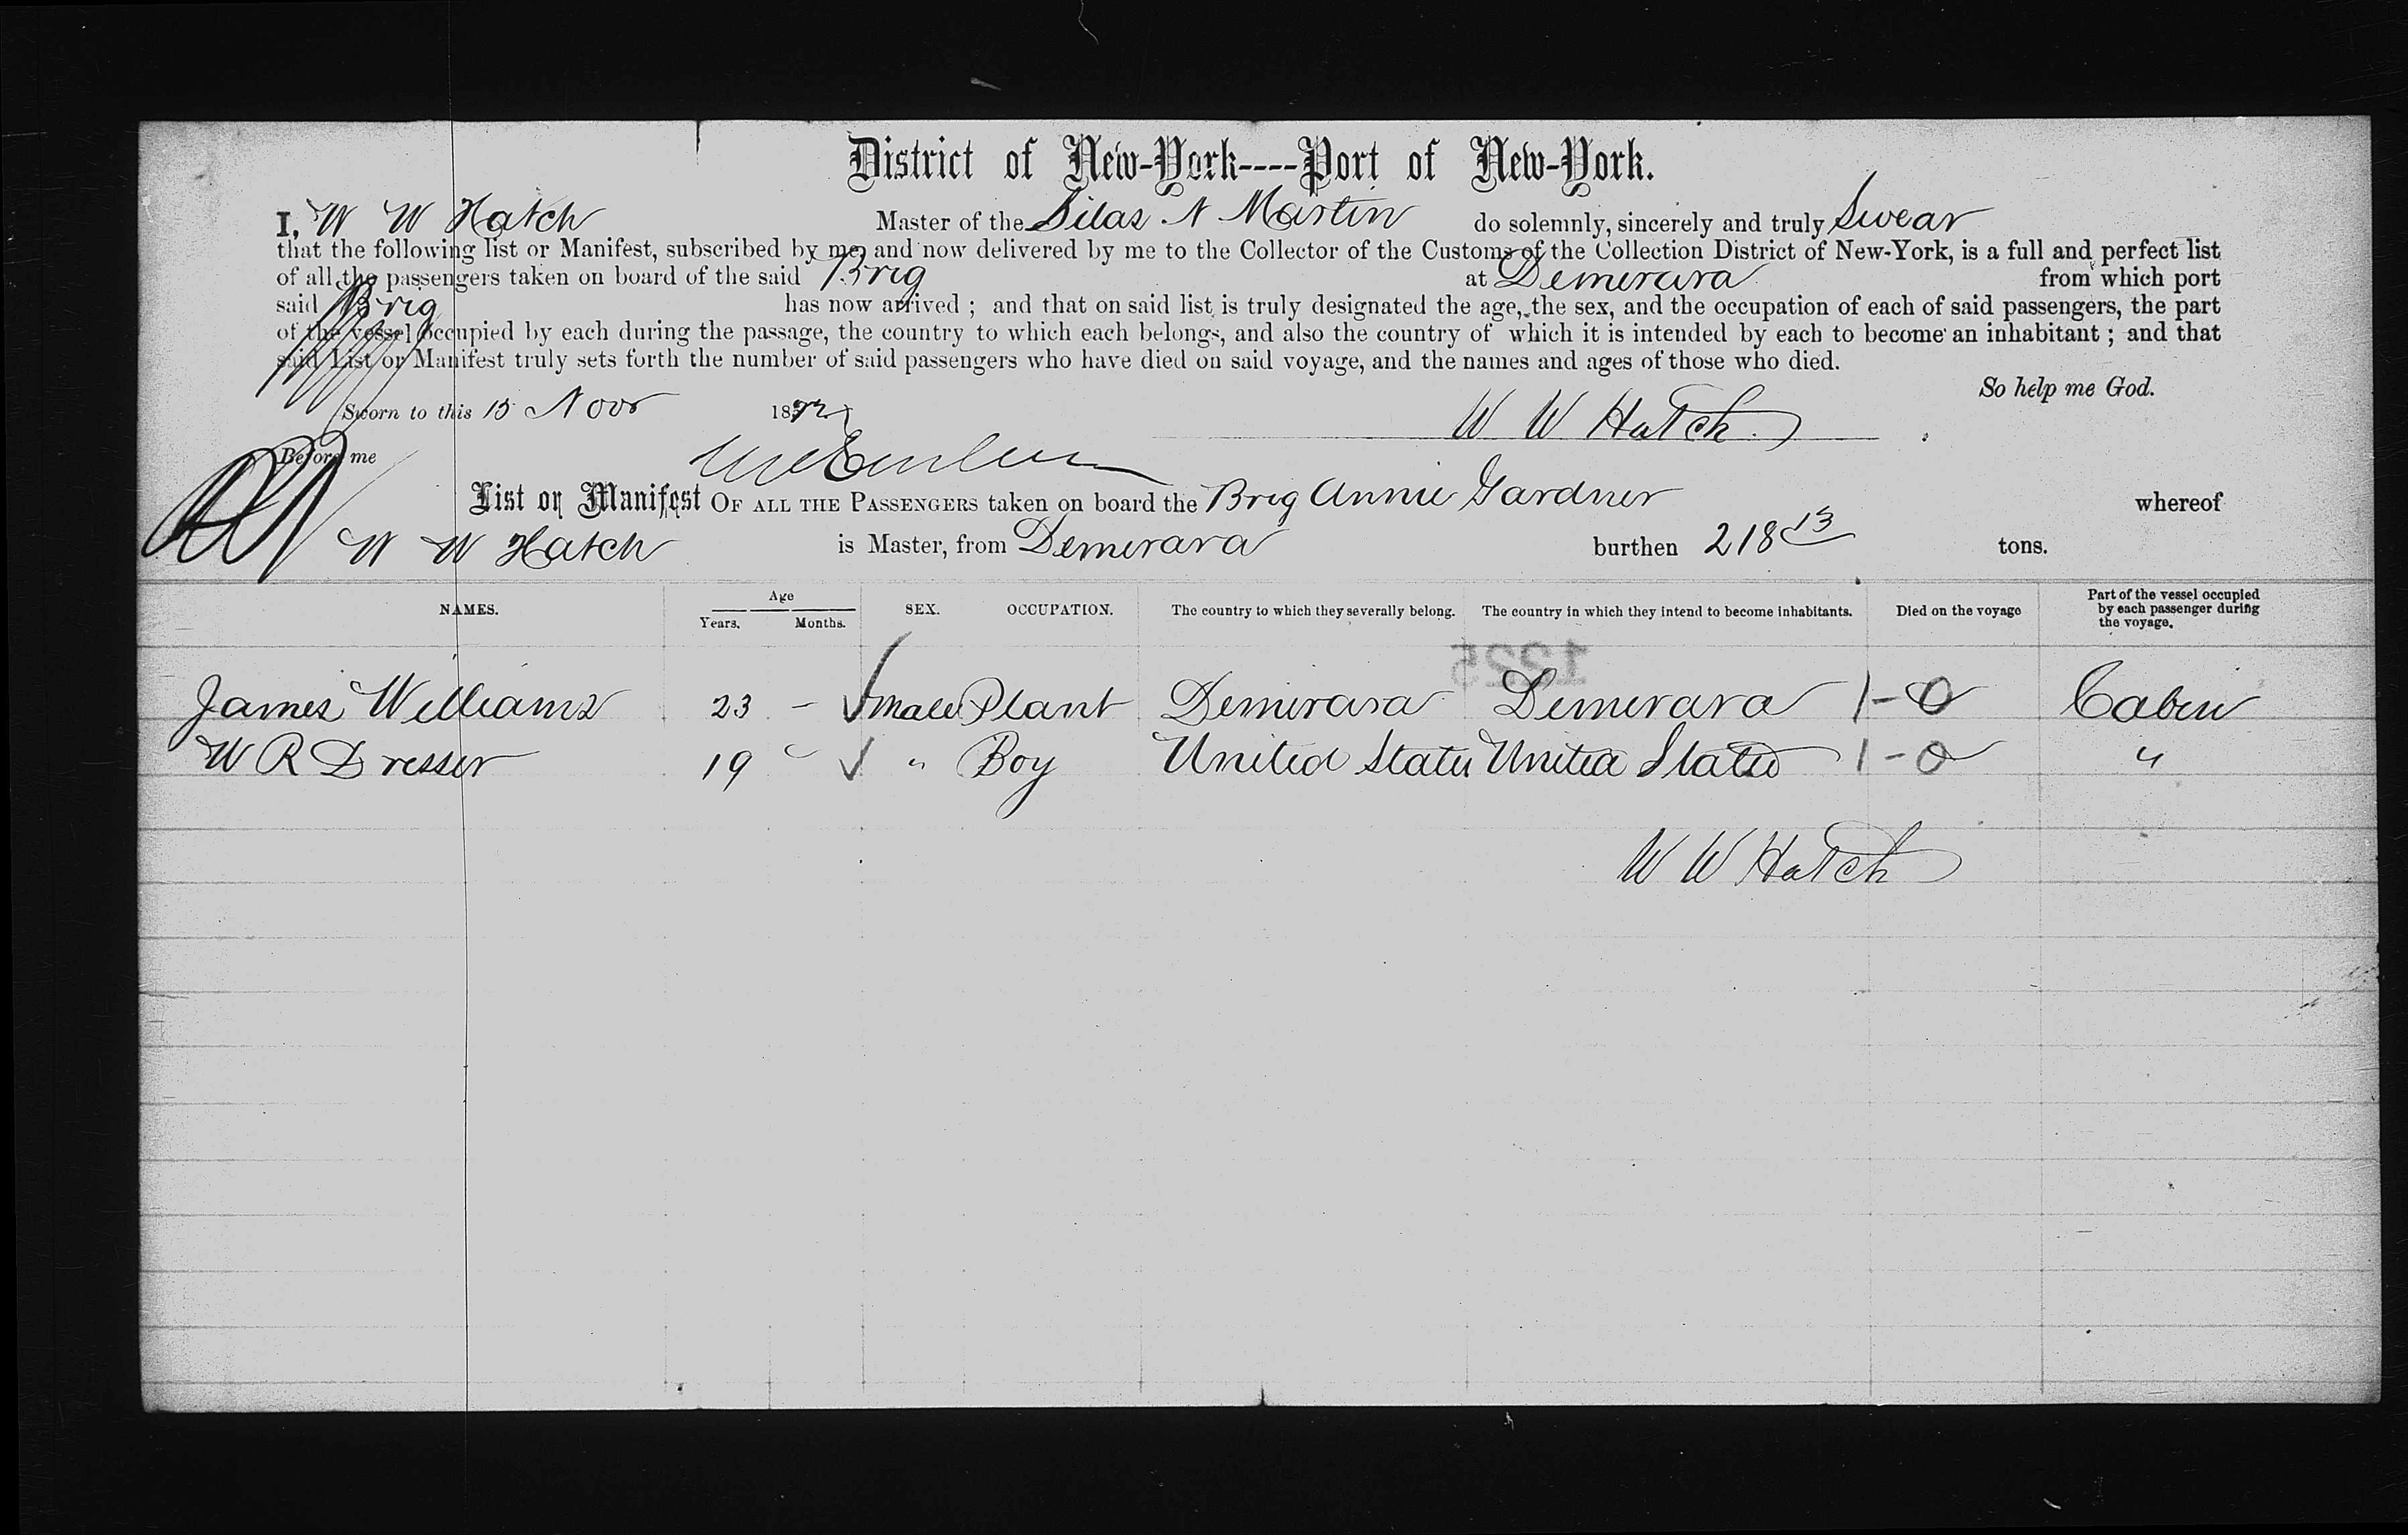 District of New-York----Port of New-York.
I, W W Hatch Master of the Silas N Martin do solemnly, sincerely and truly Swear
that the following list or Manifest, subscribed by me, and now delivered by me to the Collector of the Customs of the Collection District of New-York, is a full and perfect list
of all the passengers taken on board of the said Brig at Demerara from which port
said Brig has now arrived ; and that on said list is truly designated the age, the sex, and the occupation of each of said passengers, the part
of the vessel occupied by each during the passage, the country to which each belongs, and also the country of which it is intended by each to become an inhabitant ; and that
said List or Manifest truly sets forth the number of said passengers who have died on said voyage, and the names and ages of those who died.
So help me God.
Sworn to this 15 Novr 1872 W W Hatch
Before me
List or Manifest OF ALL THE PASSENGERS taken on board the Brig Annie Gardner whereof
W W Hatch is Master, from Demerara burthen 218 13 tons.
NAMES. Age Years. Months. SEX. OCCUPATION. The country to which they severally belong. The country in which they intend to become inhabitants. Died on the voyage Part of the vessel occupied by each passenger during the voyage.
1225
James Williams 23 - Male Plant Demerara Demerara 1-0 Cabin
W R Dresser 19 " " Boy United States United States 1-0 "
W W Hatch